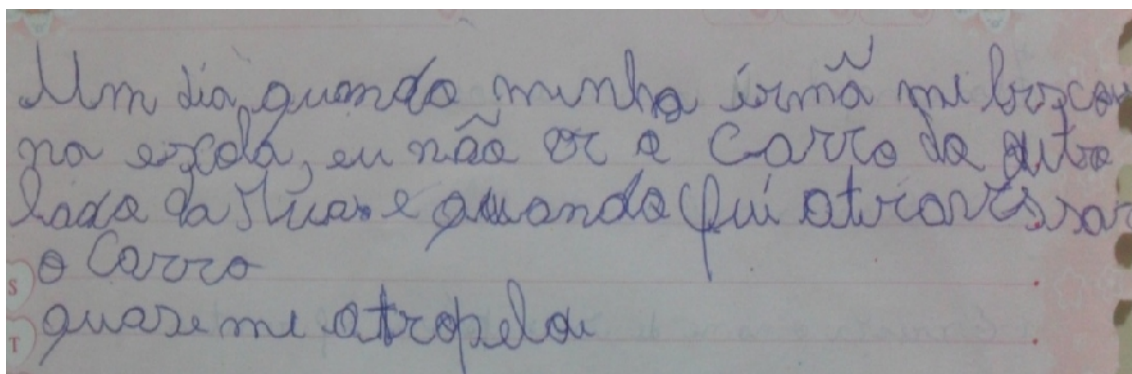 Um dia, quando minha irmã me buscou
na escola, eu não vi o carro do outro
lado da rua e quando fui atravessar
o carro
quase me atropelou
S
T